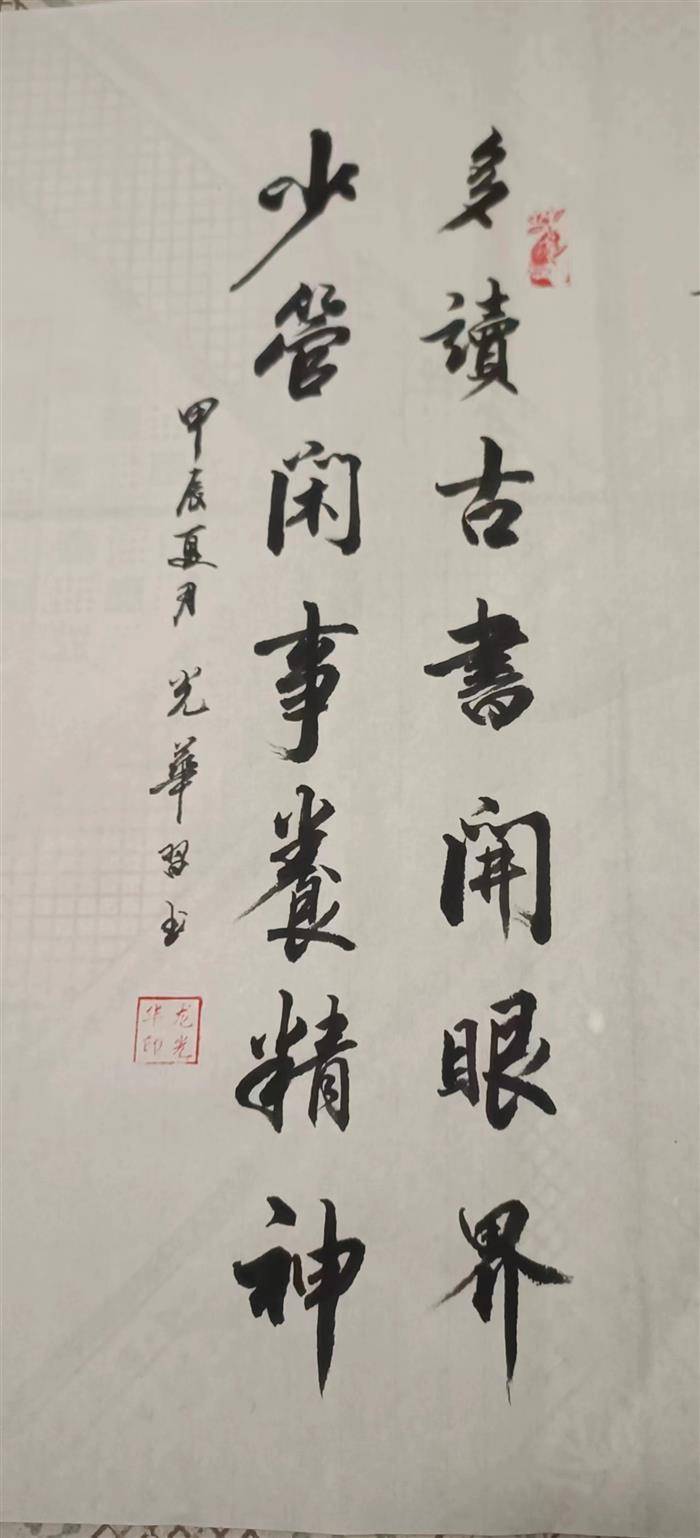 多讀古書開眼界
少管闲事養精神
甲辰夏月 光華習书
龙光华印